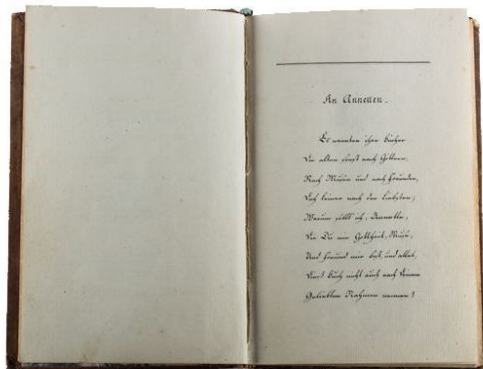 An Annetten.
Es nannten ihre Bücher
Die alten sonst nach Göttern,
Nach Musen und nach Freunden,
Doch keiner nach der Liebsten;
Warum sollt' ich, Annette,
Die Du mir Gottheit, Muse,
Und Freund mir bist, und alles,
Dies Buch nicht auch nach Deinem
Geliebten Nahmen nennen?